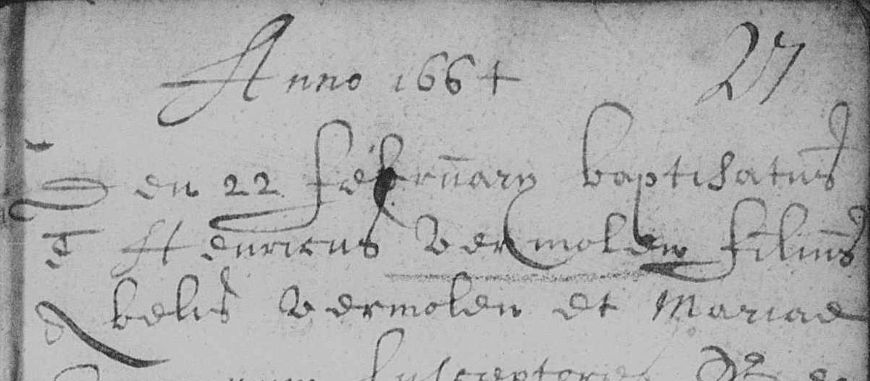 Anno 1664 27
Den 22 february baptisatus
est Henricus Vermolen filius
Abelis Vermolen et Mariae
susceptores